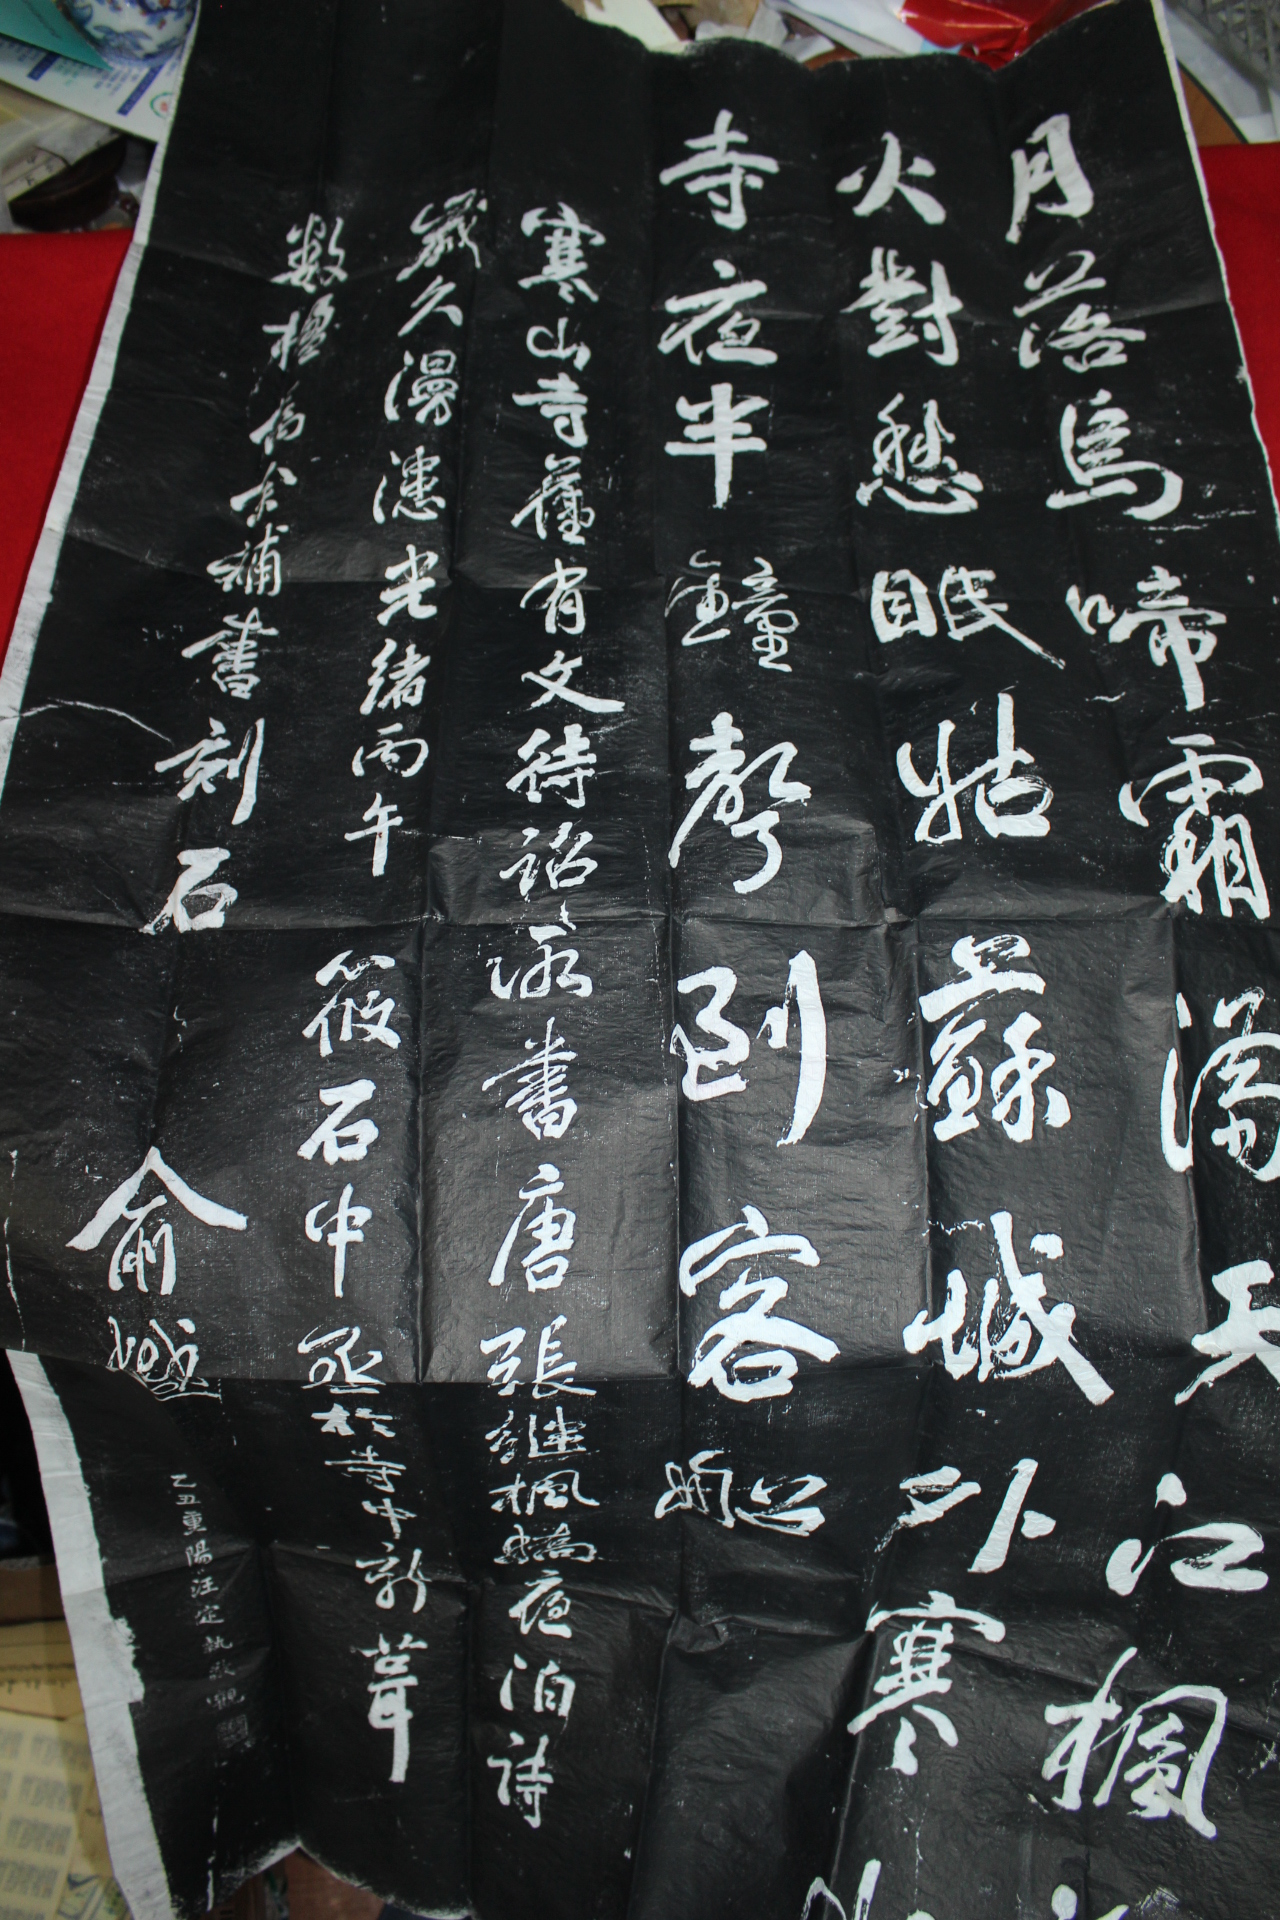 月落烏啼霜滿天江楓
火對愁眠姑蘇城外寒
寺夜半鐘聲到客船
寒山寺舊有文待詔所書唐張繼楓橋夜泊詩
歲久漫漶光緒丙午筱石中丞於寺中新葺
數楹屬余補書刻石俞樾
乙丑重陽汪定執敬觀